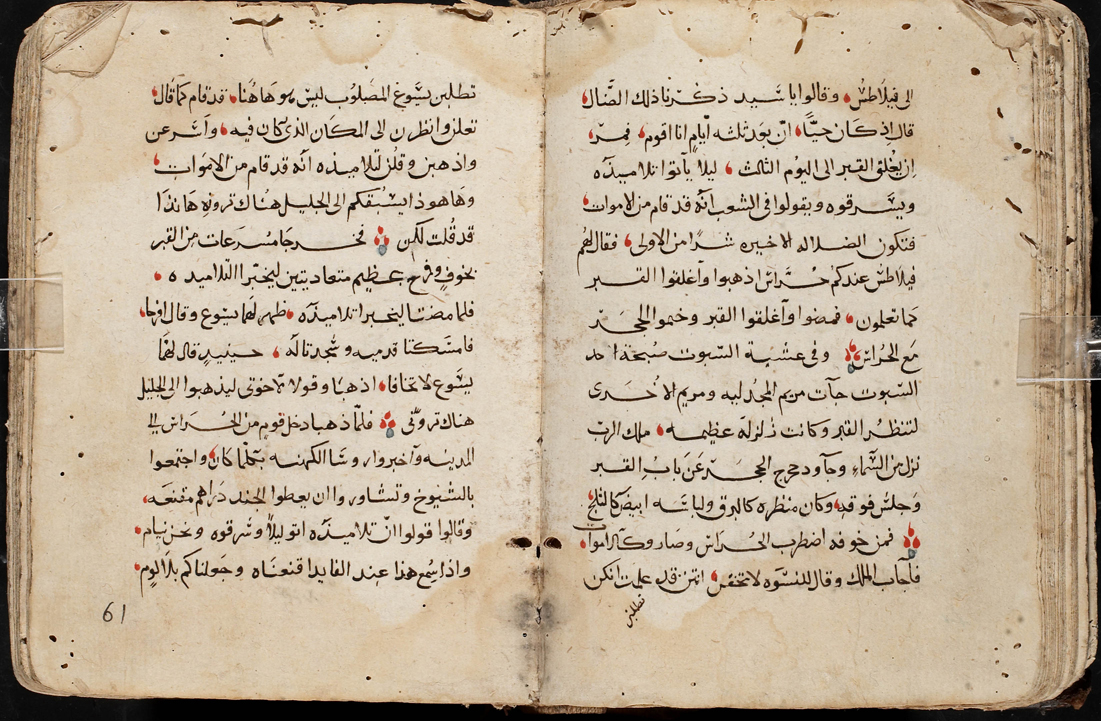 الى فيلاطس وقالوا يا سَيد ذكرنا ذلك الضَّال
قال اذ كان حيًّا ان بعد ثلثه ايام انا اقوم فمر
ان يُغلق القبر الى اليوم الثالث ليلا يأتوا تلاميذه
ويسَرقوه ويقولوا في الشعب انّه قد قام من الاموات
فتكون الضلاله الاخيره شرًا من الاولى فقال لهُم
فيلاطس عندكم حُرَّاس اذهبوا وأغلقوا القبر
كما تعلمون فمضوا وأغلقوا القبر وختموا الحجر
مَع الحُراس وفي عشية السّبوت صُبحة احد
السّبوت جآت مريم المجدليه ومريم الاُخرى
لتنظرُ القبر وكانت زلزلَه عظيمه ملك الربّ
نزل من السَّمآءِ وجآ ودحرج الحجر عَن بابِ القبر
وَجلسَ فوقه وكان منظره كالبرق ولباسَه ابيض كالثلج
فمن خوفه اضطرب الحُراس وصاروا كالاموات
فأجاب الملك وقال للنسّوه لا تخفن انتن قد علمت انكن
تطلبن
تطلبن يسَّوع المصَلوُب ليس هو هَاهُنا قد قام كما قال
تعلن وانظرن الى المكان الذي كان فيه واسَرعن
واذهبن وقلن لتلاميذه انّه قد قام من الاموات
وهَا هوذا يسَبُقكم الى الجليل هُناك ترونهِ هَا نذا
قد قُلت لكُن فخرجتا مسُرعَات من القبر
بخوفٍ وفرح عظيم متعاديتين ليخبرا التلاميذه
فلما مضتا ليخبرا تلاميذه ظهر لهما يسوع وقال افرحا
فامسَكتا قدميه وسَجدتا لَه حينيذٍ قال لهُمَا
يسَّوع لا تخافا اذهبا وقولا لاخوتي ليذهبوا الى الجليل
هناك تروني فلمّا ذهبا دخل قوم من الحُراس الى
المدينه وأخبروا روسَا الكهنه بكلما كان واجتمعوا
بالشيوخ وتشاوروا ان يعطوا الجند دَراهم مقنعَه
وقالوا قولوا انّ تلاميذه اتو ليلاً وسَرقوه ونحن نيام
واذا سُمع هذا عند القايدا قنعنَاه وجَعلناكم بلا لومٍ
61